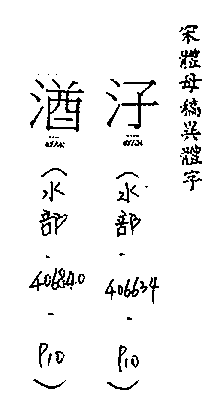 宋體母稿異體字
汓
(水部-406634-P10)
湭
(水部-406840-P10)